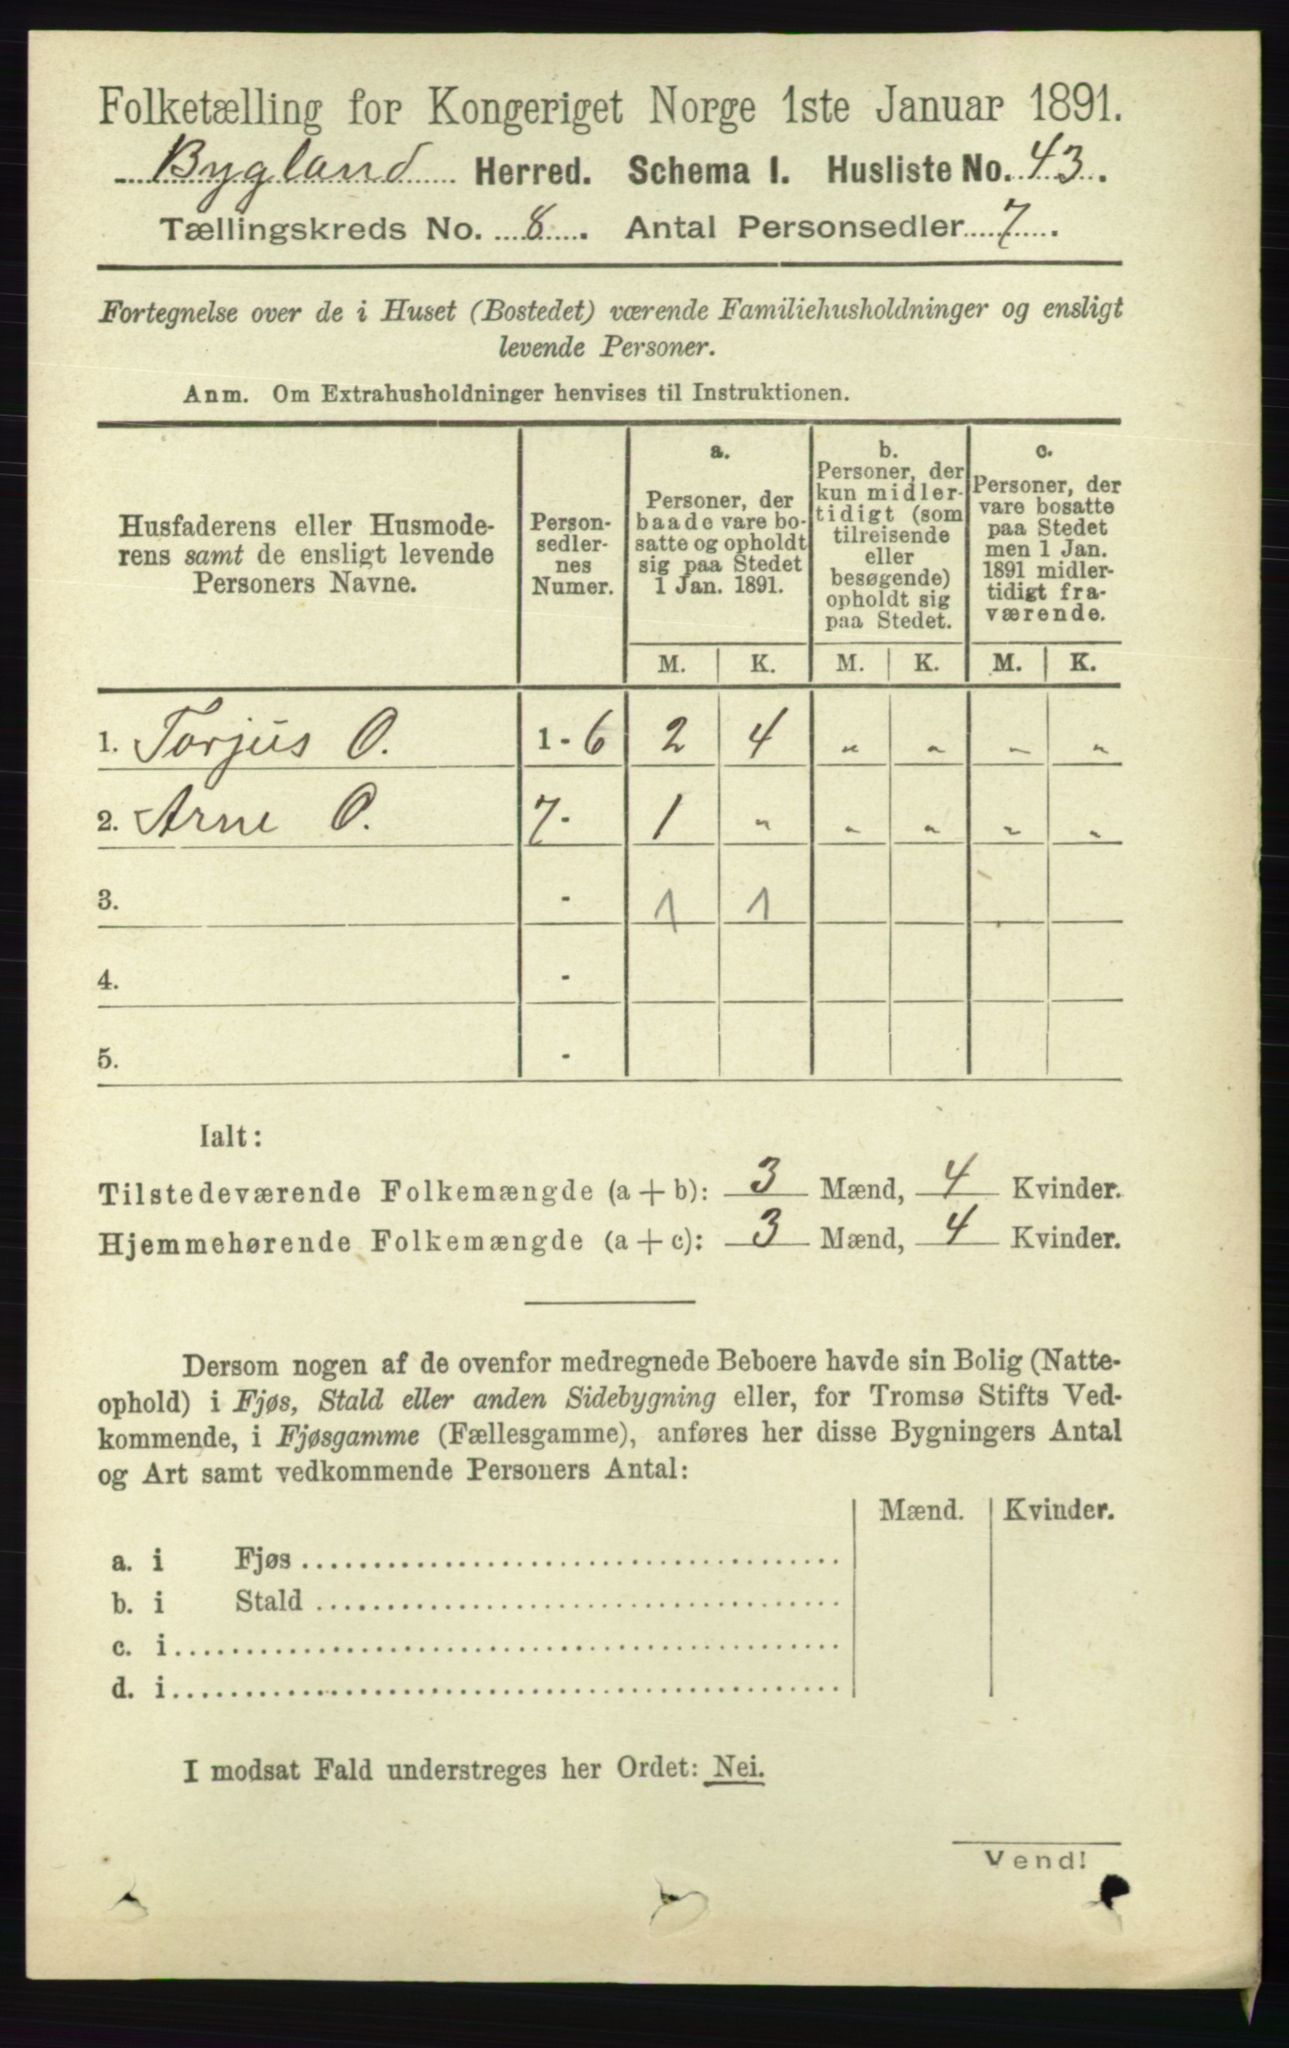 Folketælling for Kongeriget Norge 1ste Januar 1891.
Bygland Herred. Schema I. Husliste No. 43.
Tællingskreds No. 8. Antal Personsedler 7.
Fortegnelse over de i Huset (Bostedet) værende Familiehusholdninger og ensligt
levende Personer.
Anm. Om Extrahusholdninger henvises til Instruktionen.
Husfaderens eller Husmode-
rens samt de ensligt levende
Personers Navne.
Person-
sedler-
nes
Numer.
a.
Personer, der
baade vare bo-
satte og opholdt
sig paa Stedet
1 Jan. 1891.
b.
Personer, der
kun midler-
tidigt (som
tilreisende
eller
besøgende)
opholdt sig
paa Stedet.
c.
Personer, der
vare bosatte
paa Stedet
men 1 Jan.
1891 midler-
tidigt fra-
værende.
M. K. M. K. M. K.
1. Torjus O. 1 - 6 2 4 " " " "
2. Arne O. 7 - 1 " " " " "
3. - 1 1
4. -
5. -
Ialt:
Tilstedeværende Folkemængde (a + b): 3 Mænd, 4 Kvinder.
Hjemmehørende Folkemængde (a + c): 3 Mænd, 4 Kvinder.
Dersom nogen af de ovenfor medregnede Beboere havde sin Bolig (Natte-
ophold) i Fjøs, Stald eller anden Sidebygning eller, for Tromsø Stifts Ved-
kommende, i Fjøsgamme (Fællesgamme), anføres her disse Bygningers Antal
og Art samt vedkommende Personers Antal:
Mænd. Kvinder.
a. i Fjøs
b. i Stald
c. i
d. i
I modsat Fald understreges her Ordet: Nei.
Vend!